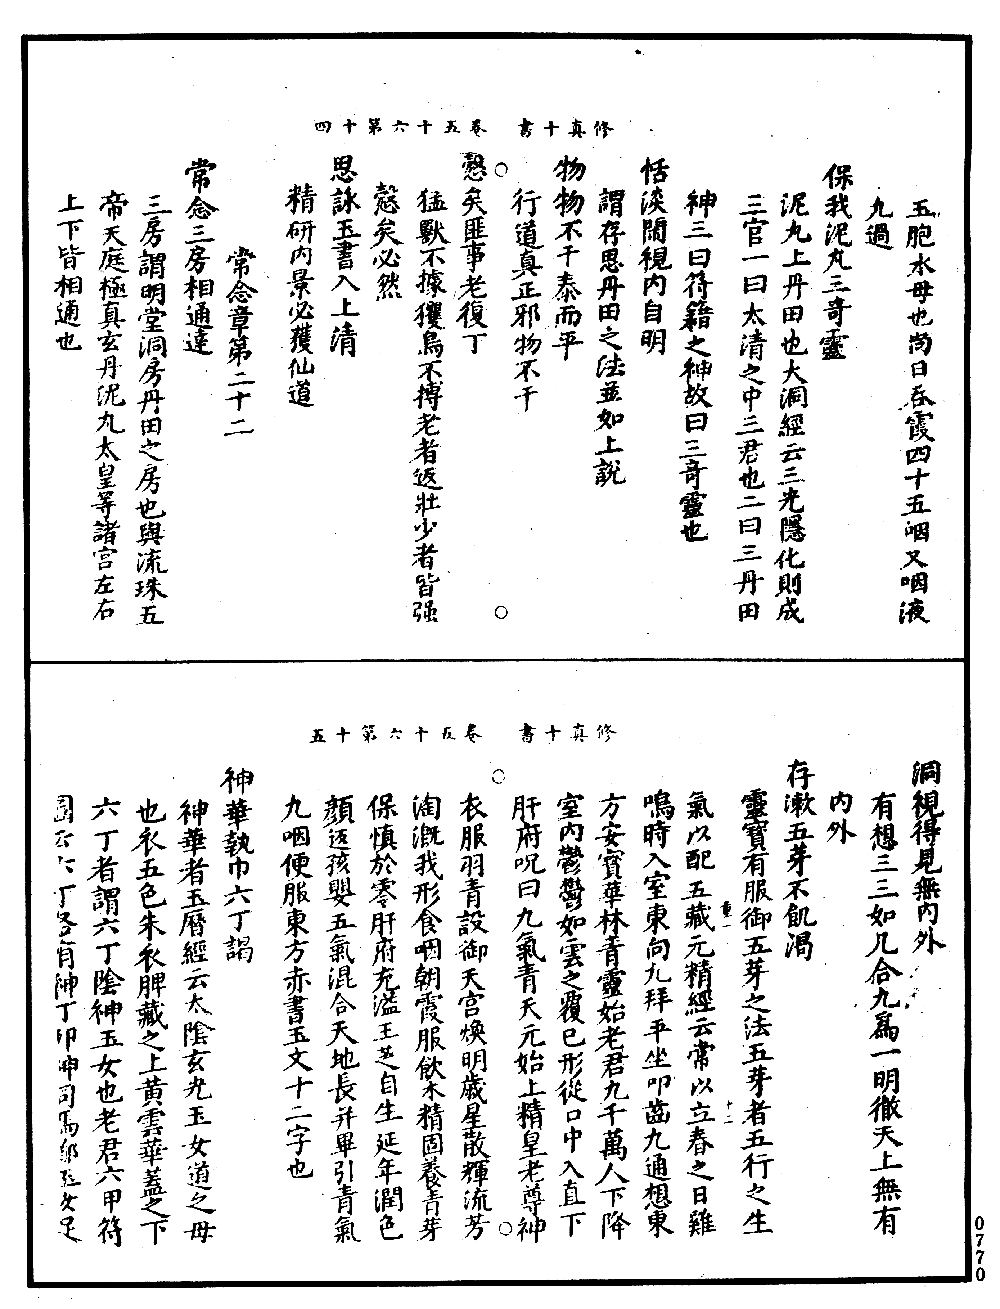 修真十書　卷五十六第十四
五胞水母也尚日吞霞四十五咽又咽液
九過
保我泥丸三奇靈
泥丸上丹田也大洞經云三光隱化則成
三官一曰太清之中三君也二曰三丹田
神三曰符籍之神故曰三奇靈也
恬淡閉視內自明
謂存思丹田之法並如上說
物物不干泰而平
行道真正邪物不干
愨矣匪事老復丁
猛獸不據玃鳥不搏老者返壯少者皆强
愨矣必然
思詠玉書入上清
精研內景必獲仙道
常念章第二十二
常念三房相通達
三房謂明堂洞房丹田之房也與流珠五
帝天庭極真玄丹泥丸太皇等諸宮左右
上下皆相通也
修真十書　卷五十六第十五
洞視得見無內外
有想三三如几合九爲一明徹天上無有
內外
存漱五芽不飢渴
靈寶有服御五芽之法五芽者五行之生
氣以配五藏元精經云常以立春之日雞
鳴時入室東向九拜平坐叩齒九通想東
方安寶華林青靈始老君九千萬人下降
室內鬱鬱如雲之覆已形從口中入直下
肝府呪曰九氣青天元始上精皇老尊神
衣服羽青設御天宮煥明歲星散輝流芳
淘溉我形食咽朝霞服飲木精固養青芽
保慎於零肝府充溢玉芝自生延年潤色
顏返孩嬰五氣混合天地長并畢引青氣
九咽便服東方赤書玉文十二字也
神華執巾六丁謁
神華者玉曆經云太陰玄光玉女道之母
也衣五色朱衣脾藏之上黃雲華蓋之下
六丁者謂六丁陰神玉女也老君六甲符
圖云六丁各有神丁卯神司馬卿玉女足
0770